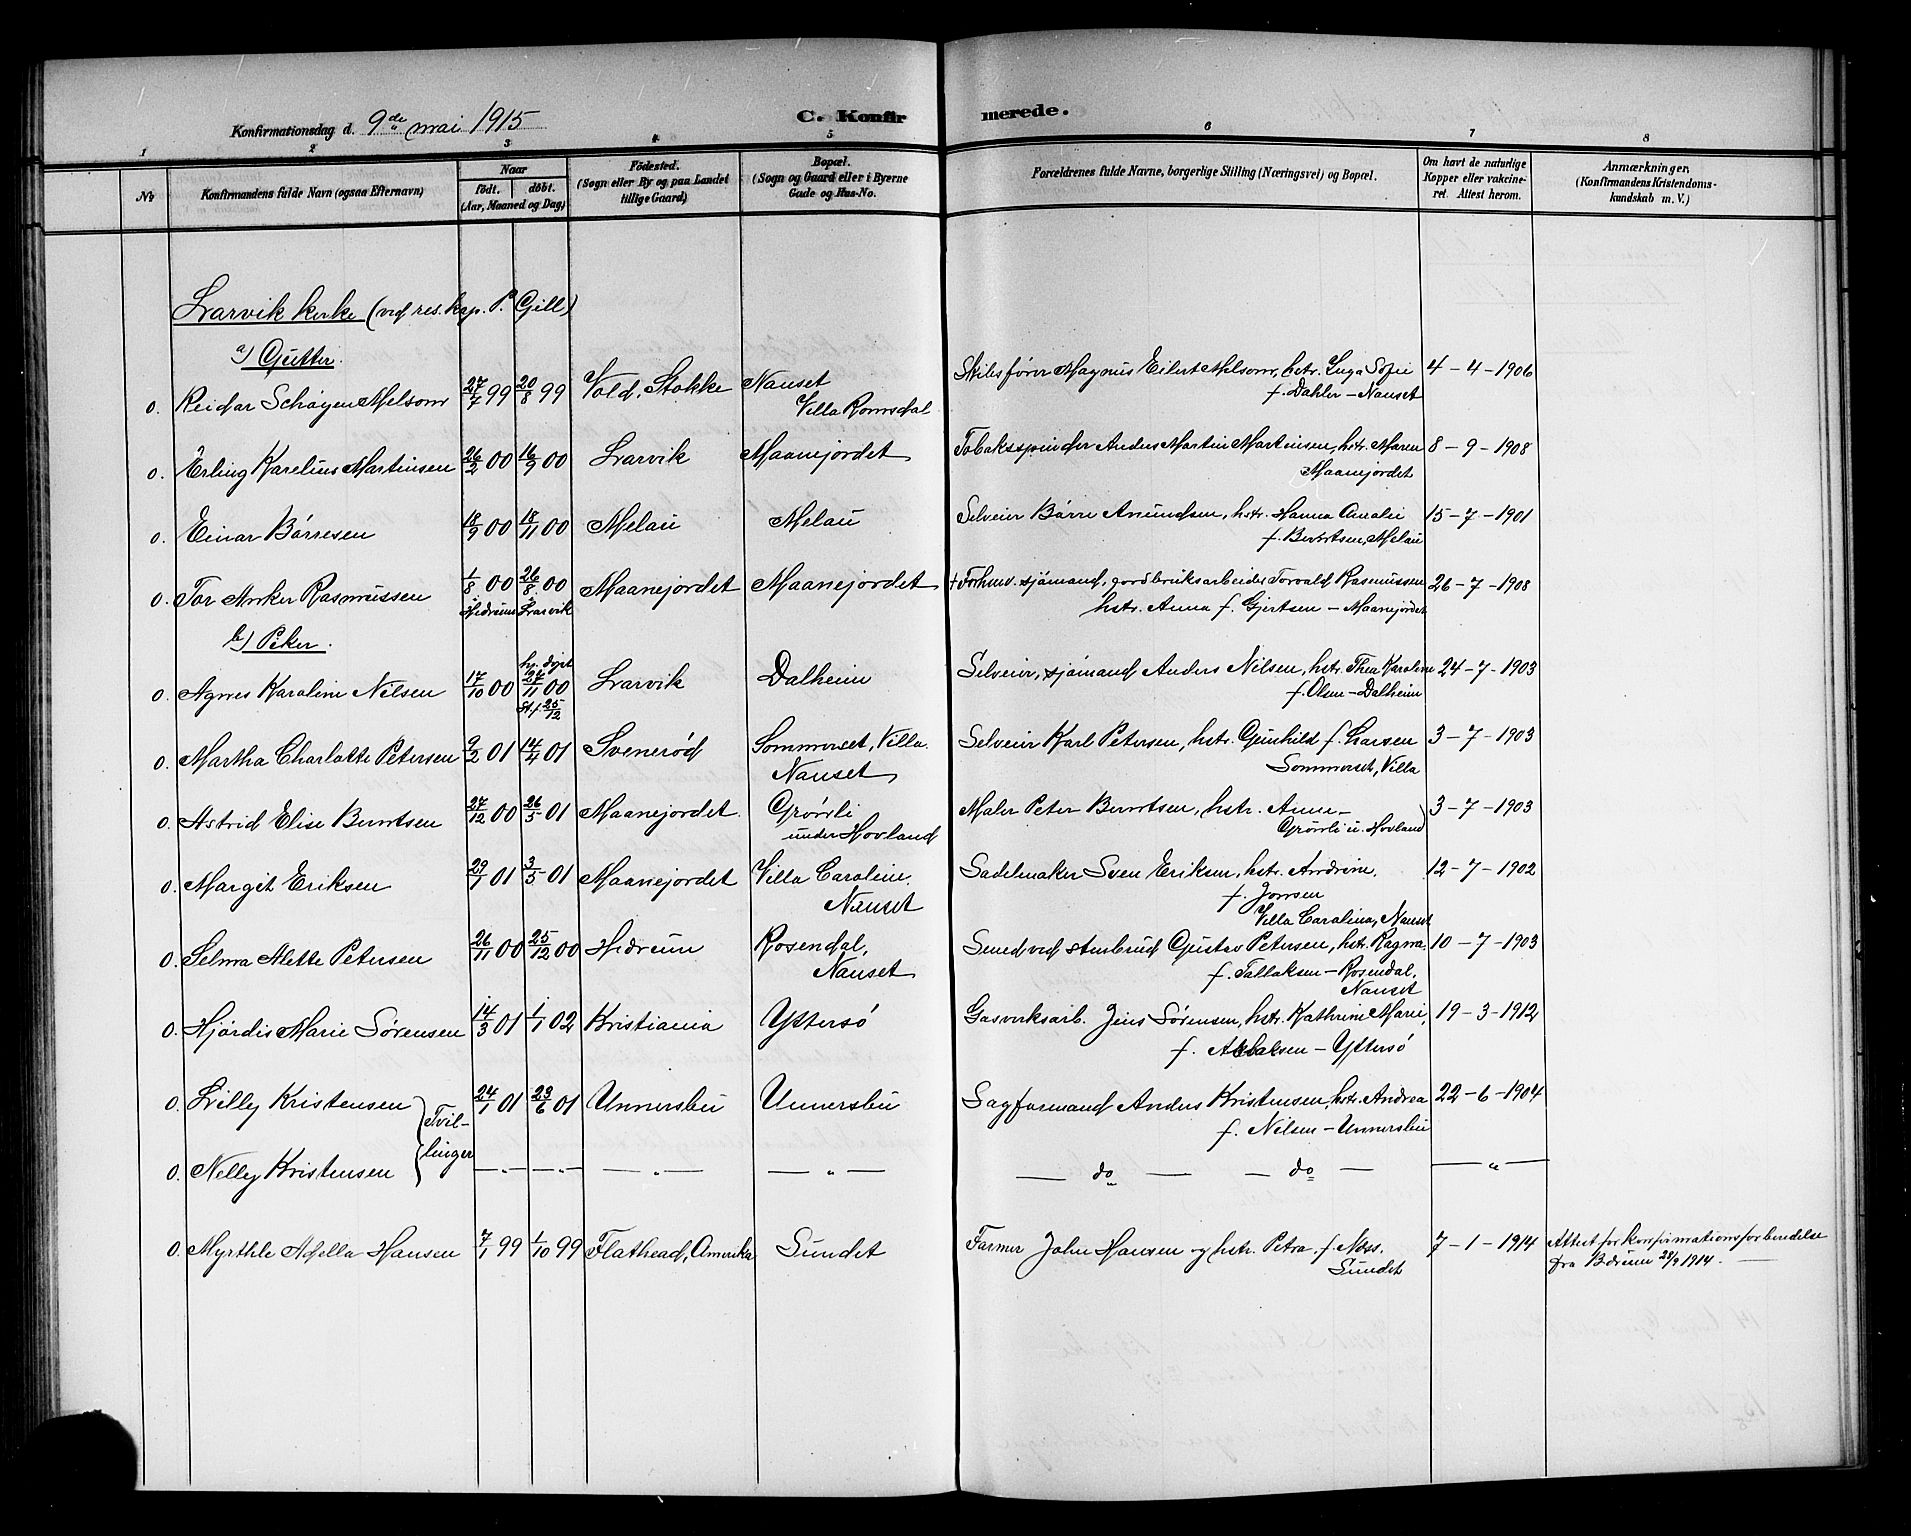 Konfirmationsdag d. 9de mai 1915
C. Konfirmerede.
1 2 3 4 5 6 7 8
No
Konfirmandens fulde Navn (ogsaa Efternavn)
Naar
födt. döbt.
(Aar, Maaned og Dag)
Födested.
(Sogn eller By og paa Landet
tillige Gaard)
Bopæl.
(Sogn og Gaard eller i Byerne
Gade og Hus-No.
Forældrenes fulde Navne, borgerlige Stilling (Næringsvei) og Bopæl.
Om havt de naturlige
Kopper eller vakcine-
ret. Attest herom.
Anmærkninger.
(Konfirmandens Kristendoms-
kundskab m. V.)
Larvik kirke (ved res. kap. P. Gill)
a) Gutter.
0. Reidar Schøyen Melsom 27/7 99 20/8 99 Vold, Stokke Nauset
Villa Romsdal
Skibsfører Magnus Eilert Melsom, hstr. Inga Sofie 4-4-1906
f. Dahler – Nauset
0. Erling Karelius Martinsen 26/2 00 16/9 00 Larvik Maanejordet
Tobaksspinder Anders Martin Martinsen, hstr. Maren 8-9-1908
Maanejordet
0. Einar Børresen 18/9 00 18/11 00 Melau Melau
Selveier Børre Anundsen, hstr. Hanna Amalie 15-7-1901
f. Berntsen, Melau
0. Tor Anker Rasmussen 1/8 00 26/8 00 Maanejordet Maanejordet
i Hedrum i Larvik
+ Forhenv. sjømand, jordbruksarbeider Torvald Rasmussen 26-7-1908
hstr. Anna f. Gjertsen – Maanejordet
b) Piker.
0. Agnes Karoline Nilsen 17/10 00 hj. døpt 27/11 00 Larvik Dalheim
st. f. 25/12
Selveier, sjømand Anders Nilsen, hstr. Thea Karoline 24-7-1903
f. Olsen – Dalheim
0. Martha Charlotte Petersen 9/2 01 14/4 01 Svenerød Sommerset, Villa.
Nauset
Selveier Karl Petersen, hstr. Gunhild f. Larsen 3-7-1903
Sommerset, Villa
0. Astrid Elise Berntsen 27/12 00 26/5 01 Maanejordet. Grønli
under Hovland
Maler Peter Berntsen, hstr. Anne – 3-7-1903
Grønli u. Hovland
0. Margit Eriksen 29/1 01 3/5 01 Maanejordet Villa Caroline.
Nauset
Sadelmaker Sven Eriksen, hstr. Andrine, 12-7-1902
f. Jonsen
Villa Carolina, Nauset
0. Selma Alette Petersen 26/11 00 25/12 00 Hedrum Rosendal,
Nauset
Smed ved stenbrud Gustav Petersen, hstr. Ragna 10-7-1903
f. Tallaksen – Rosendal,
Nauset
0. Hjördis Marie Sørensen 14/3 01 1/1 02 Kristiania Yttersö
Gasverksarb. Jens Sørensen, hstr. Kathrine Marie, 19-3-1912
f. – Yttersö
0. Lilly Kristensen 24/1 01 23/6 01 Unnersbu Unnersbu
Tvil-
linger
Sagformand Anders Kristensen, hstr. Andrea 22-6-1904
f. Nilsen – Unnersbu
0. Nelly Kristensen — „ — — „ — — „ — — „ —
— do — — do — — „ —
0. Myrthle Adella Hansen 7/1 99 1/10 99 Flathead, Amerika Sundet
Farmer John Hansen og hstr. Petra f. Moss. 7-1-1914
Sundet
Attest for konfirmationsforberedelse
fra Bærum 28/9 1914.